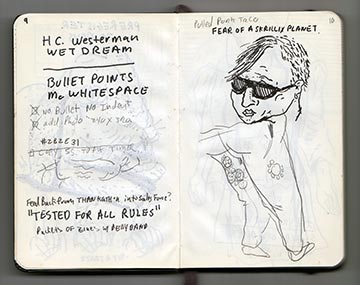 9
H.C. Westerman
WET DREAM
BULLET POINTS
Mc WHITESPACE
no Bullet No Indent
add Photo
#282E31
Feed Back From THANKATHON into Sales Force?
"TESTED FOR ALL RULES"
Packets of Zines w BELLY BAND
10
Pulled Pork Taco
FEAR OF A SKRILLY PLANET.